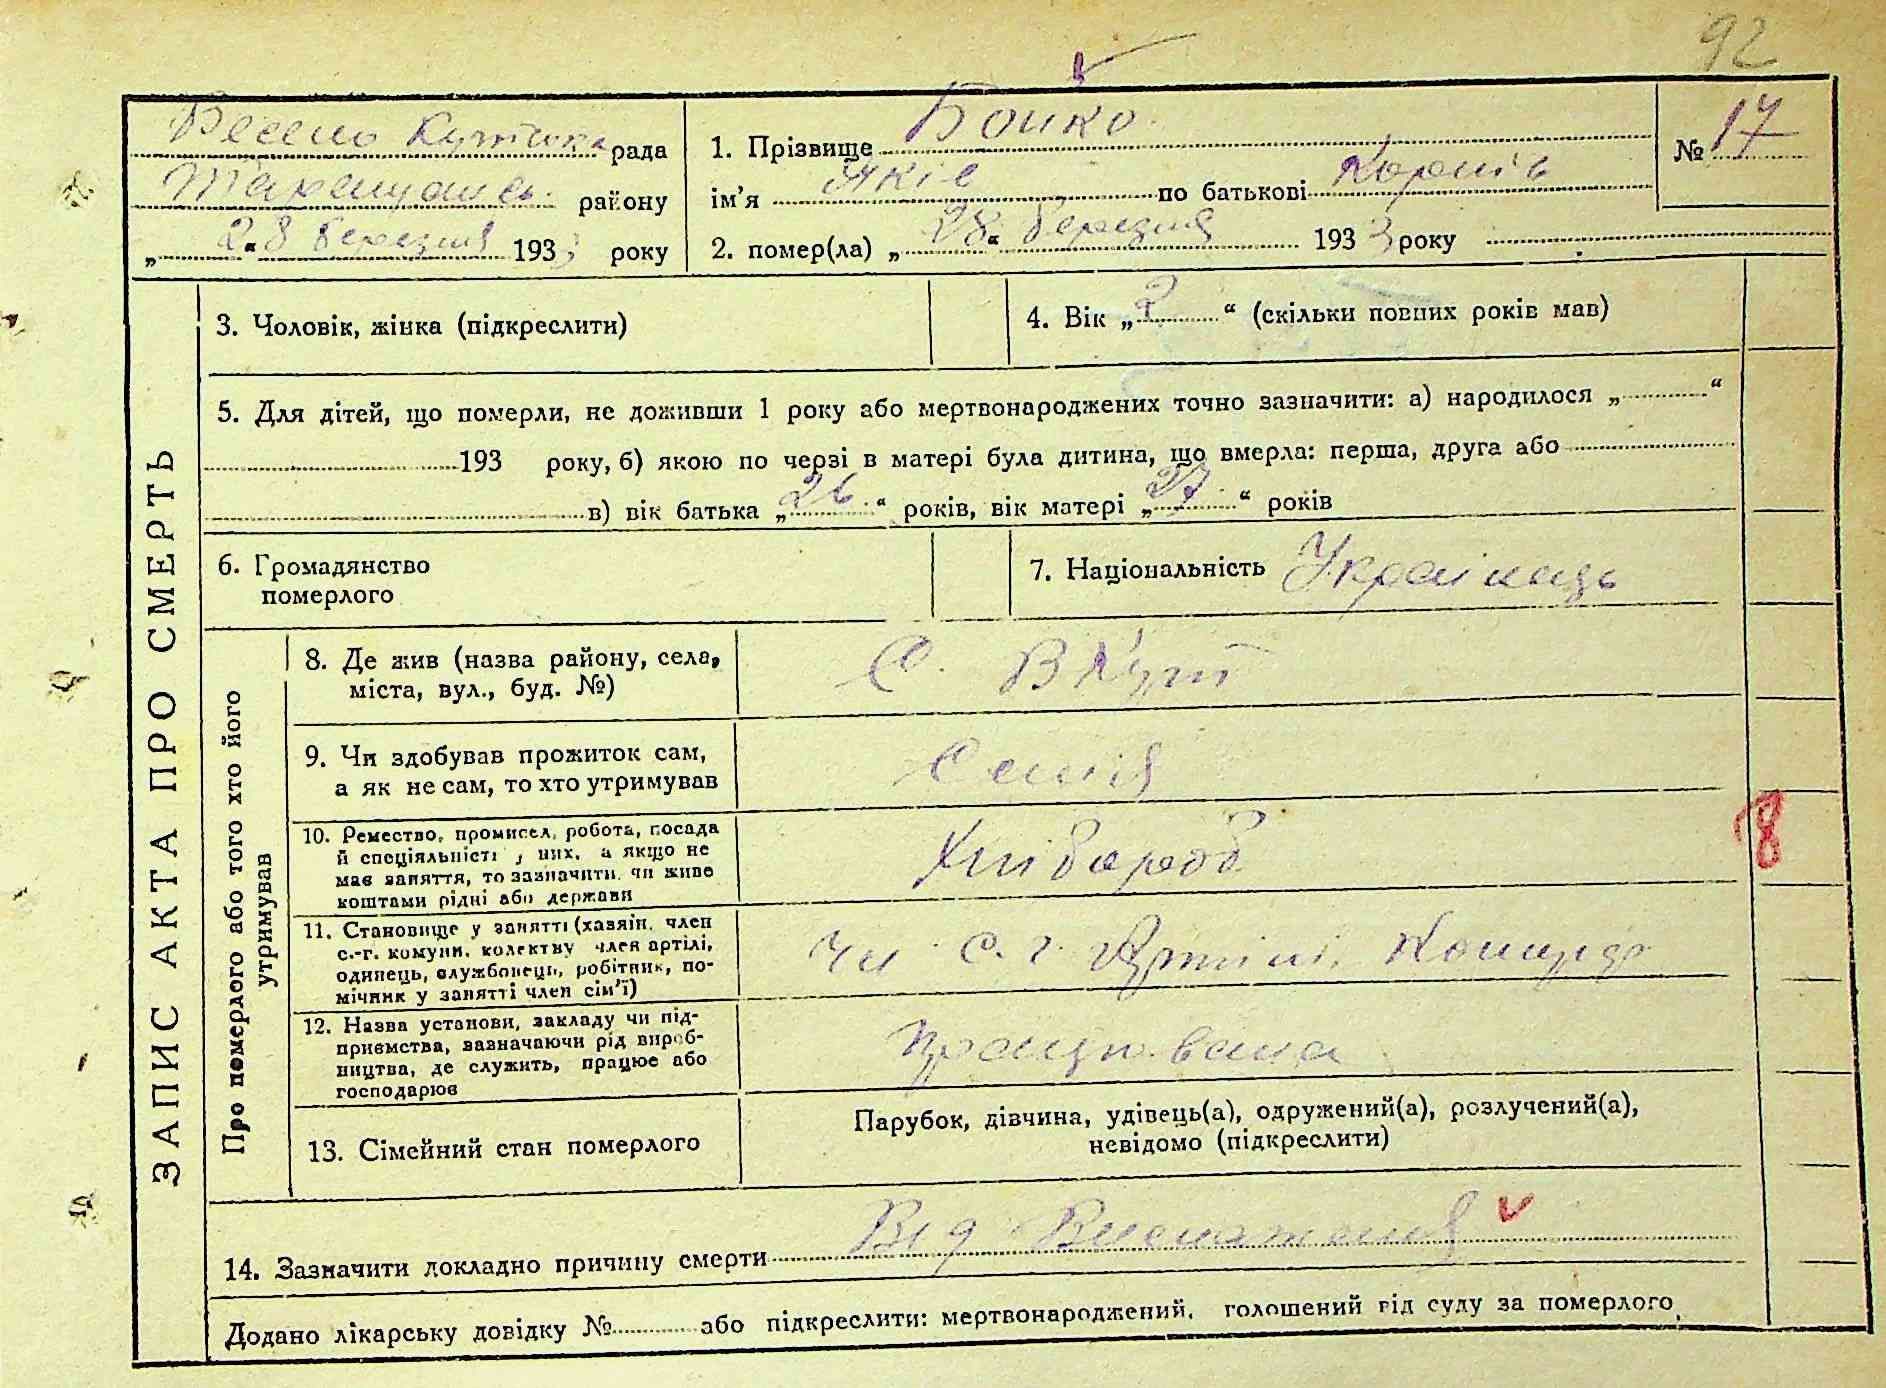 92
Весело Кутська рада
району
„28“ березня 1933 року
1. Прізвище Бойко
ім’я Яків по батькові
2. помер(ла) „28“ березня 1933 року
№ 17
ЗАПИС АКТА ПРО СМЕРТЬ
3. Чоловік, жінка (підкреслити)
4. Вік „2“ (скільки повних років мав)
5. Для дітей, що померли, не доживши 1 року або мертвонароджених точно зазначити: а) народилося „ “
193 року, б) якою по черзі в матері була дитина, що вмерла: перша, друга або
в) вік батька „26“ років, вік матері „27“ років
6. Громадянство
померлого
7. Національність Украінець
Про померлого або того хто його
утримував
8. Де жив (назва району, села,
міста, вул., буд. №)
С. В Кут
9. Чи здобував прожиток сам,
а як не сам, то хто утримував
Семія
10. Ремество, промисел, робота, посада
й спеціяльність у них, а якщо не
має заняття, то зазначити, чи живе
коштами рідні або держави
Хлібороб
8
11. Становище у занятті (хазяїн, член
с.-г. комуни, колективу член артілі,
одинець, службовець, робітник, по-
мічник у занятті член сім’ї)
Чл. С. г Артілі
12. Назва установи, закладу чи під-
приємства, зазначаючи рід вироб-
ництва, де служить, працює або
господарює
13. Сімейний стан померлого
Парубок, дівчина, удівець(а), одружений(а), розлучений(а),
невідомо (підкреслити)
14. Зазначити докладно причину смерти Від Виснаження
Додано лікарську довідку № або підкреслити: мертвонароджений, голошений від суду за померлого